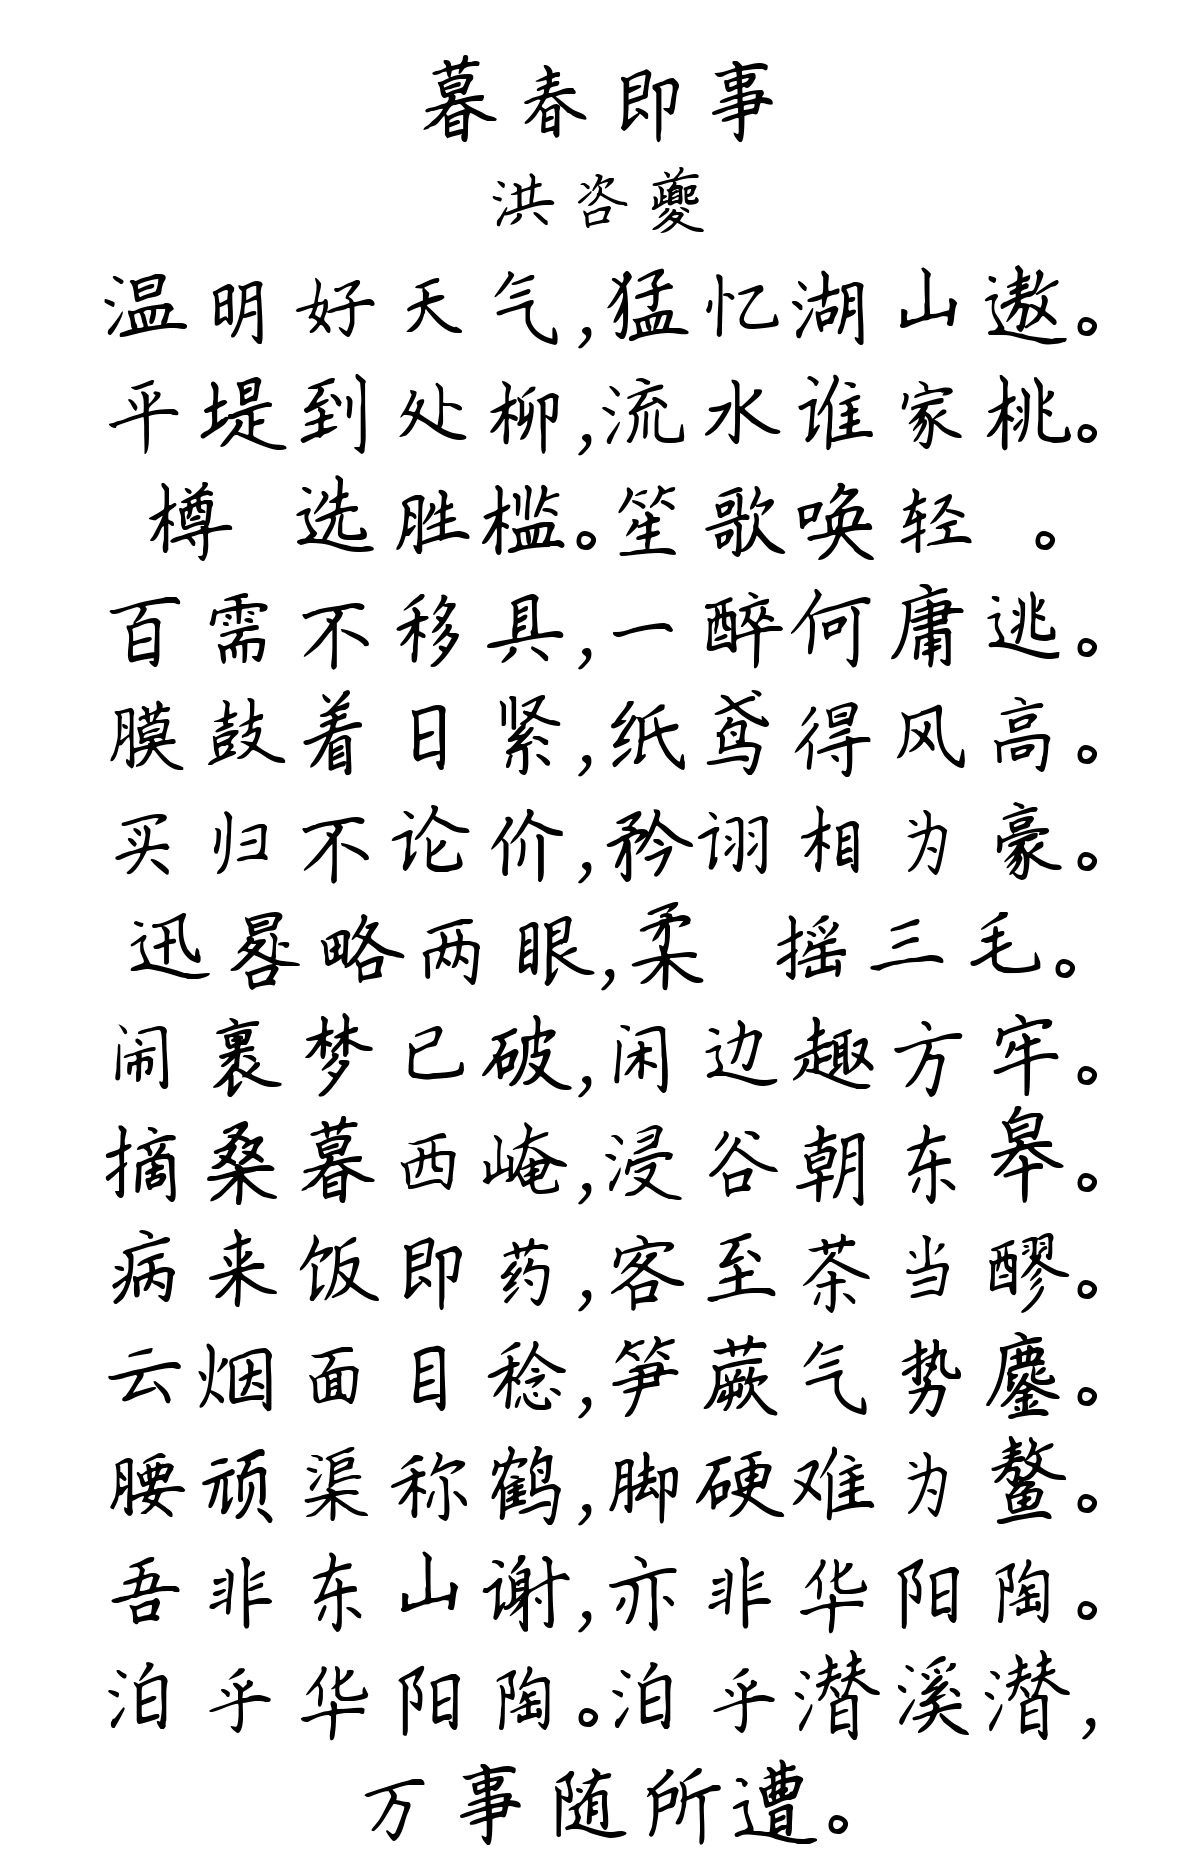 暮春即事
洪咨夔
温明好天气,猛忆湖山遨。
平堤到处柳,流水谁家桃。
樽 选胜槛。笙歌唤轻 。
百需不移具,一醉何庸逃。
膜鼓着日紧,纸鸢得风高。
买归不论价,矜诩相为豪。
迅晷略两眼,柔 摇三毛。
闹裹梦已破,闲边趣方牢。
摘桑暮西崦,浸谷朝东皋。
病来饭即药,客至茶当醪。
云烟面目稔,笋蕨气势鏖。
腰顽渠称鹤,脚硬难为鳌。
吾非东山谢,亦非华阳陶。
泊乎华阳陶。泊乎潜溪潜,
万事随所遭。